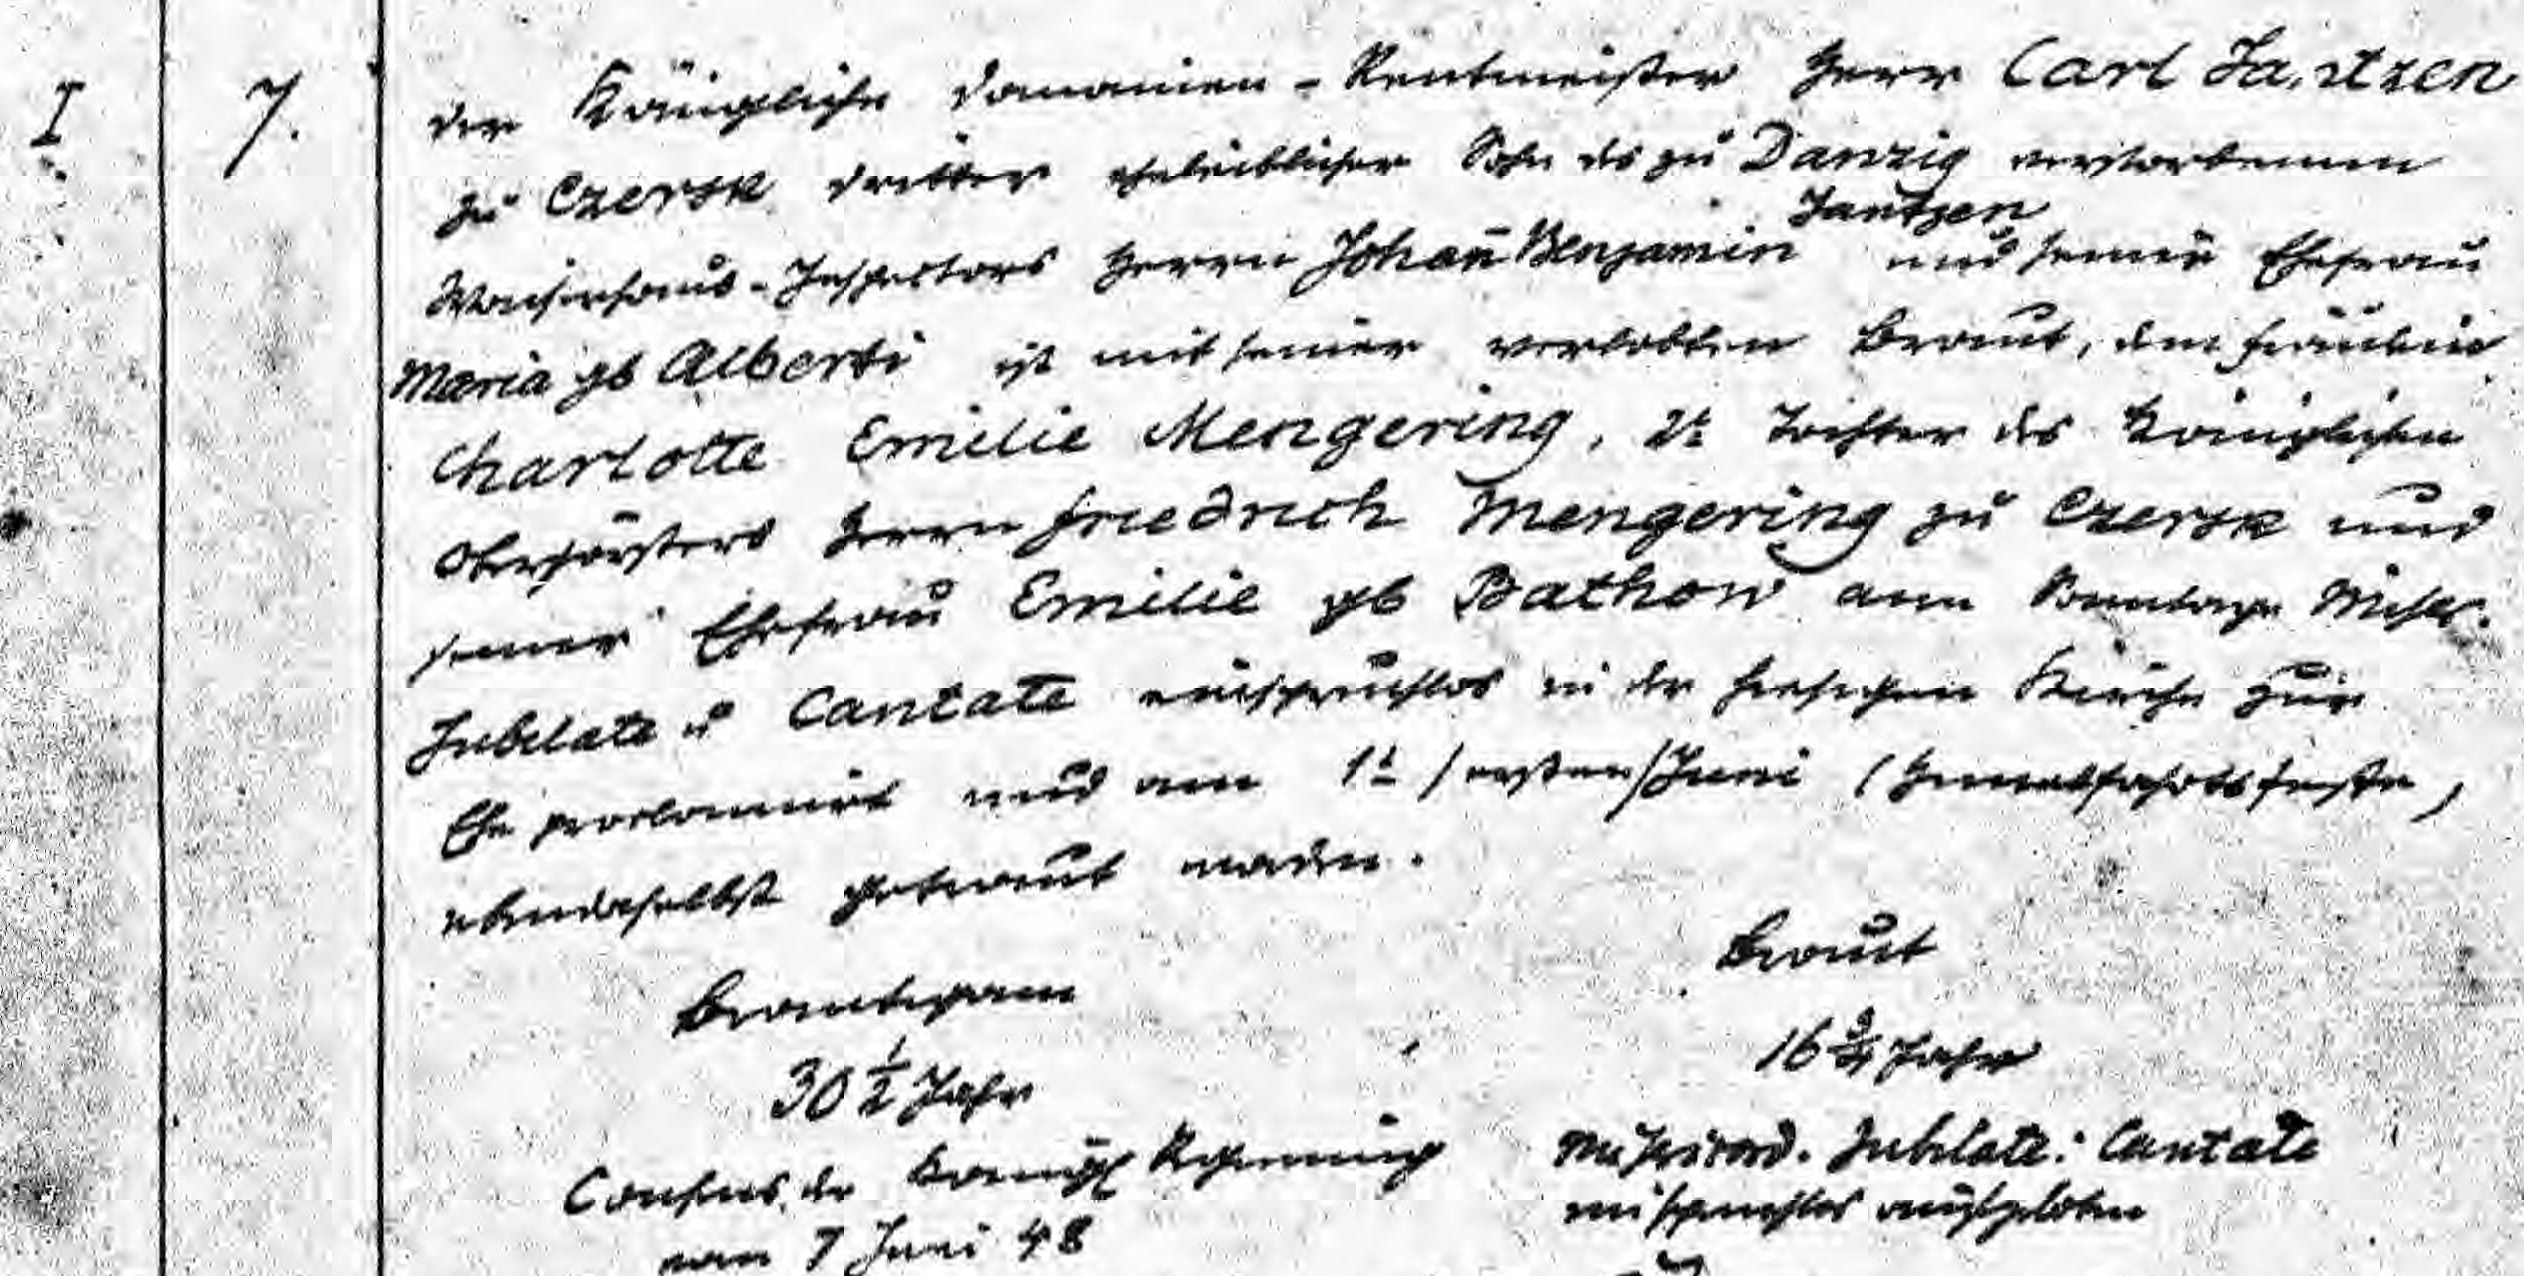 I 7. der Königliche Domainen-Rentmeister Herr Carl Jantzen
zu Czersk dritter eheleiblicher Sohn des zu Danzig verstorbenen
Jantzen
Waisenhaus-Inspectors Herrn Johan̄ Benjamin und seiner Ehefrau
Maria gb Alberti ist mit seiner verlobten Braut, dem Fräulein
Charlotte Emilie Mengering, 2t Tochter des Königlichen
Oberförsters Herrn Friedrich Mengering zu Czersk und
seiner Ehefrau Emilie gb Bathow am Sonntage Miser.
Jubilate u Cantate einspruchslos in der hiesigen Kirche zur
Ehe proclamirt und am 1t /ersten/ Juni (Himmelfahrtsfeste)
ebendaselbst getraut worden.
Braut
Brautigam
16 3/4 Jahr
30 1/2 Jahr
Misericord. Jubilate. Cantate
Consens der Königl Regierung
einspruchslos aufgeboten
vom 7 Juni 48